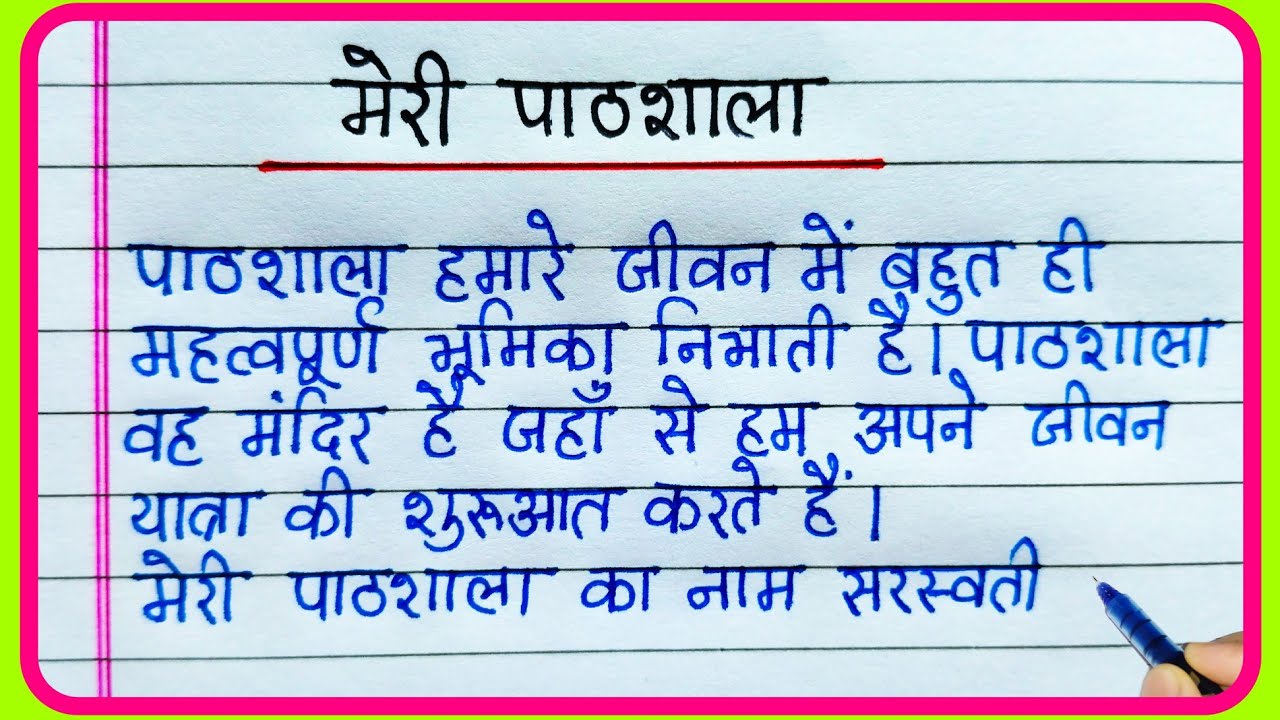 मेरी पाठशाला
पाठशाला हमारे जीवन में बहुत ही
महत्वपूर्ण भूमिका निभाती है। पाठशाला
वह मंदिर है जहाँ से हम अपने जीवन
यात्रा की शुरूआत करते हैं।
मेरी पाठशाला का नाम सरस्वती